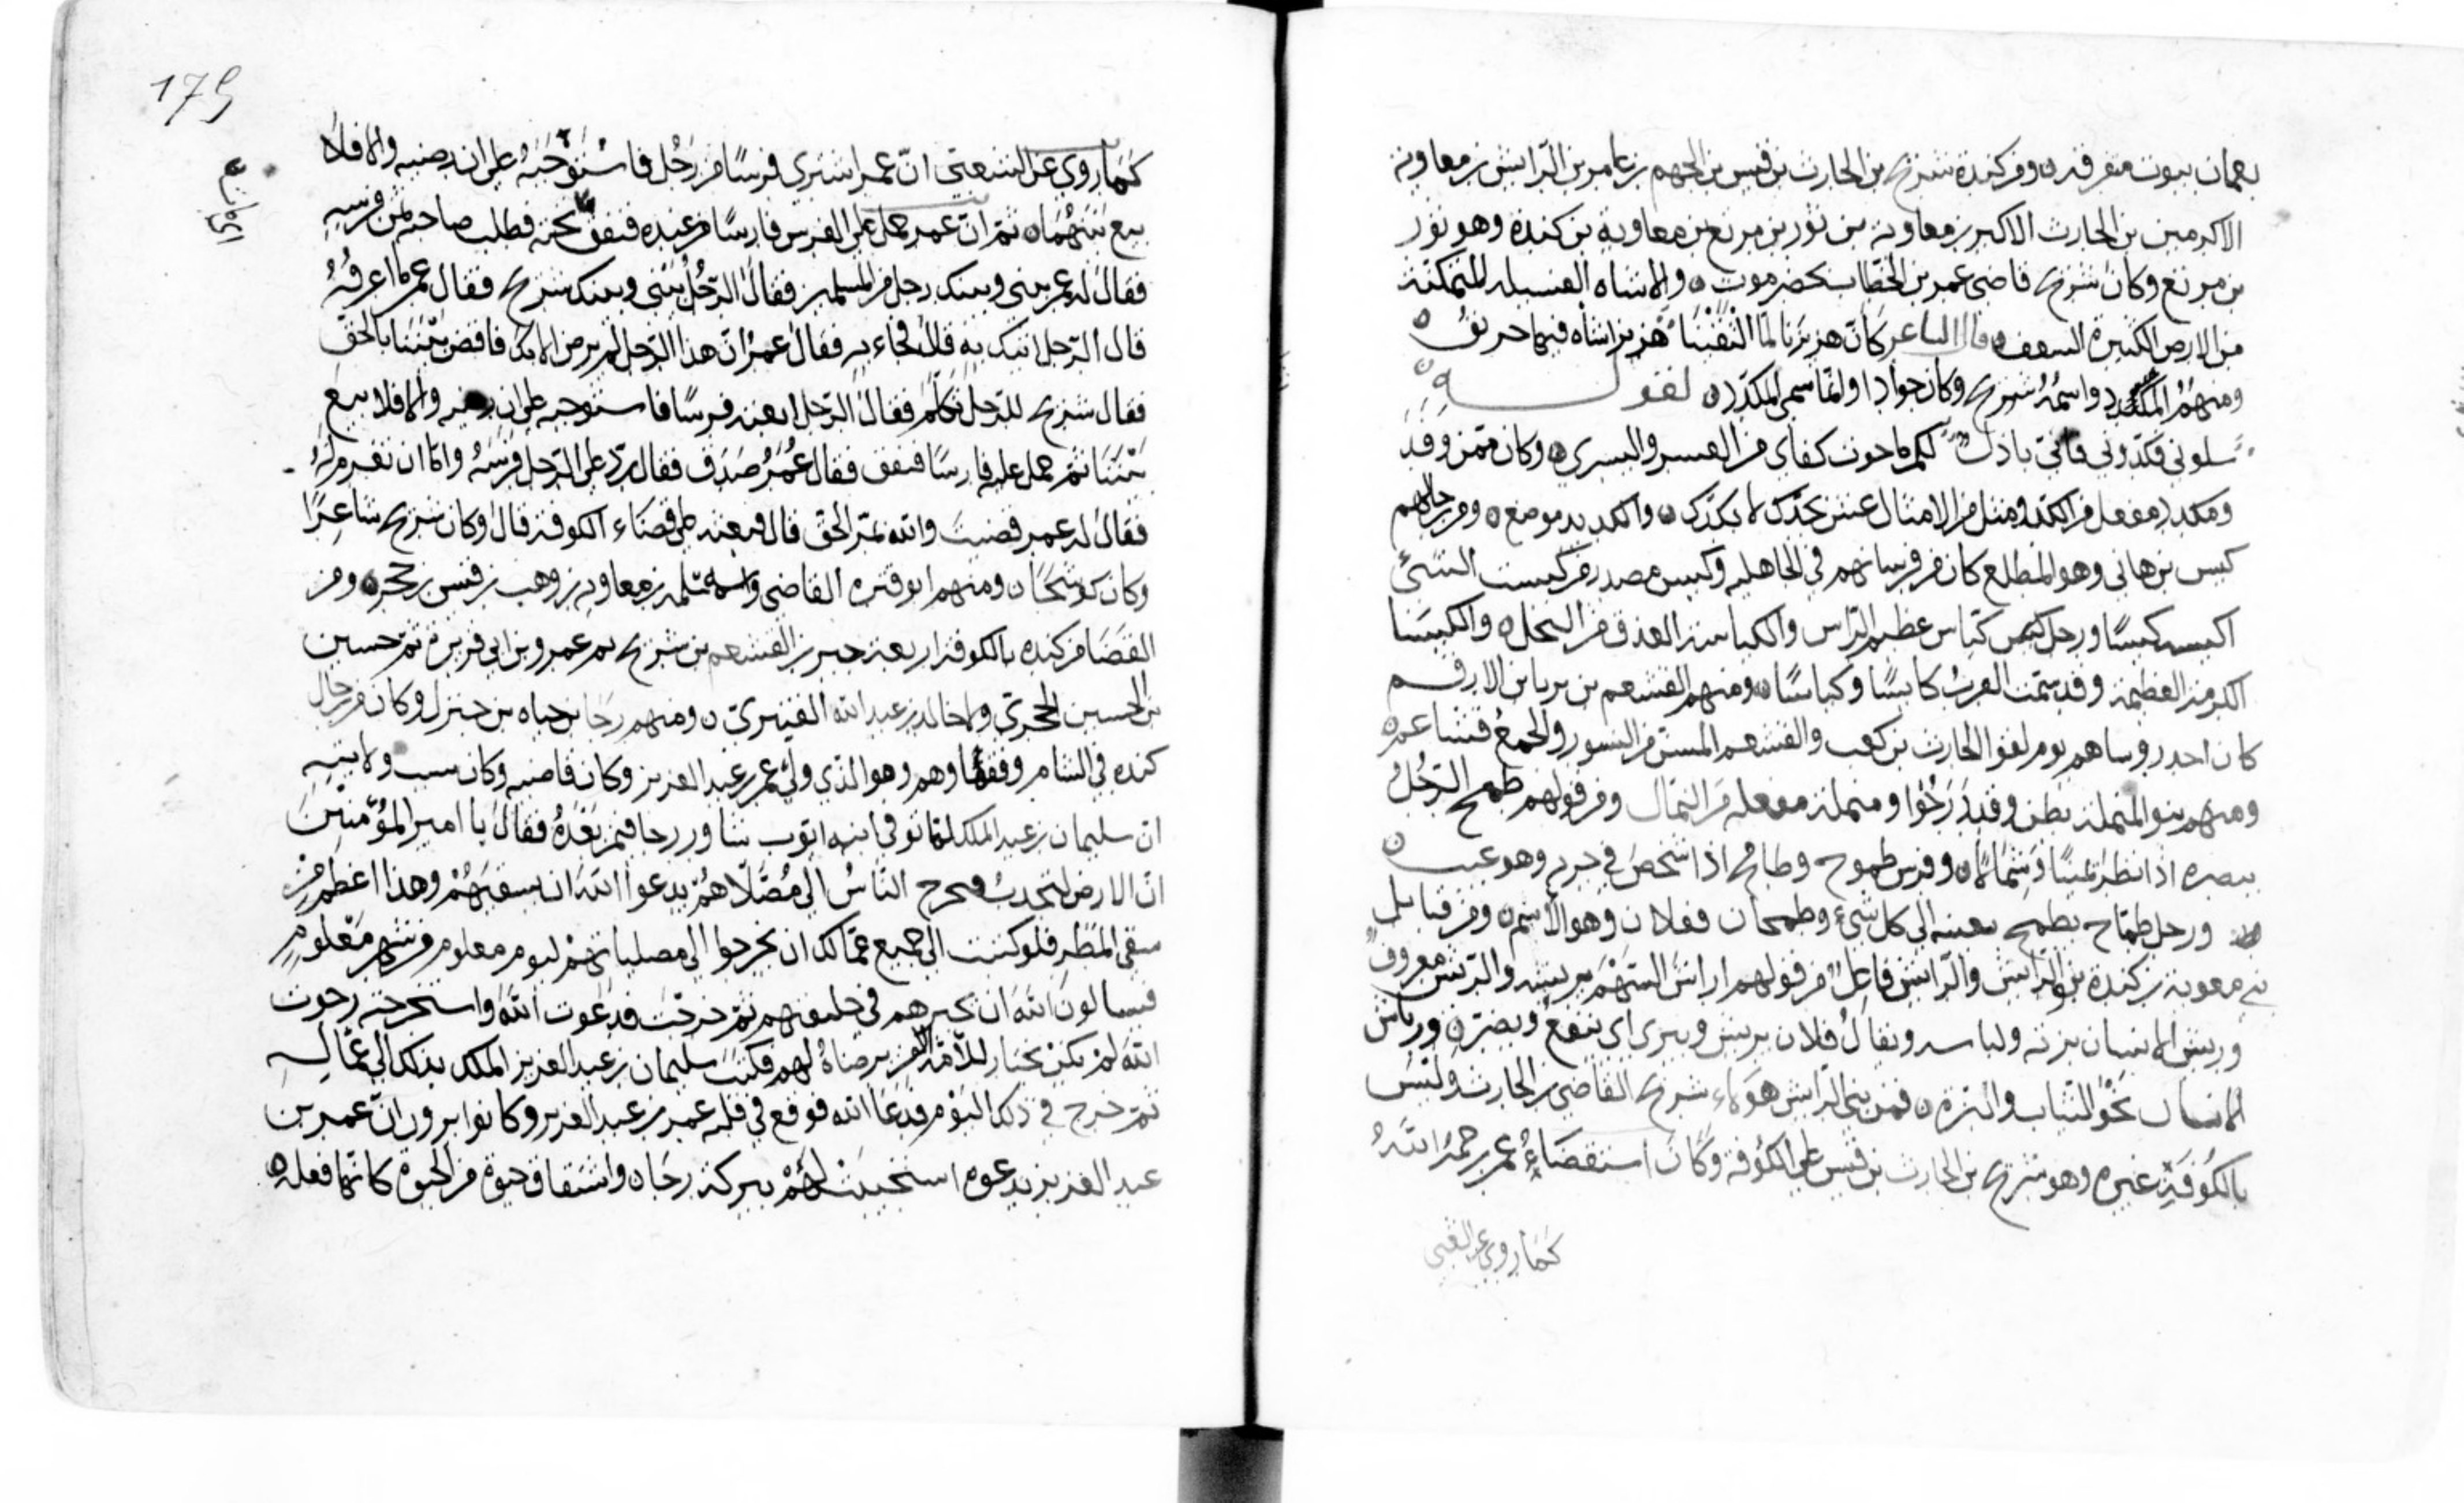 بعمان بيوت متفرقة ومن كندة شريح بن الحارث بن قيس بن الجهم بن عامر بن الرايش بن معاوية
الاكرمين بن الحارث الاكبر بن معاوية بن ثور بن مرتع بن معاوية بن كندة وهو ثور
بن مرتع وكان شريح قاضي عمر بن الخطاب بحضرموت والاشاه الفسيله المتمكنة
من الارض الكثيرة السعف قال الشاعر كان هزيزنا لما التقينا هزيز اشاه فيها حريق
ومنهم المكدد واسمه شريح وكان جوادا وانما سمي المكدد لقوله
سلوني فكدوني فاني باذل لكم ما حوت كفاي من العسر واليسر وكان ممن وفد
ومكدد مفعل من الكد ومثل من الامثال عش بجدك لا بكدك والكديد موضع ومن رجالهم
كبس بن هاني وهو المطلع كان من فرسانهم في الجاهليه وكبس مصدر من كبست الشئ
اكبسه كبسا ورجل كباس عظيم الراس والكباسة العذق من النخل والكبيسا
الكرمة العظيمة وقد سمت العرب كابسا وكباسا ومنهم القشعم بن يزيد بن الارقم
كان احد روساهم يوم لقوا الحارث بن كعب والقشعم المسن من النسور والجمع قشاعمه
ومنهم بنو المثملة بطن وقد درجوا ومثملة مفعله من الثمال ومن قولهم طمح الرجل
ببصره اذا نظر يمينا وشمالا وفرس طموح وطامح اذا شخص في جريه وهو عيب
ورجل طماح يطمح بعينه الى كل شيء وطمحان فعلان وهو الاسم ومن قبايل
بني معوية بن كندة بنو الرايش والرايش فاعل من قولهم اراش السهم يريشه والريش معروف
وريش الانسان بزته ولباسه ويقال فلان يريش ويبري اي ينفع ويضر ورياش
الانسان نحو الثياب والبزة فمن بني الرايش هؤلاء شريح القاضي بن الحارث وليس
بالكوفة غيره وهو شريح بن الحارث بن قيس على الكوفة وكان استقضاء عمر رحمه الله
كما روي عن الشعبي
179
كما روي عن الشعبي ان عمر اشترى فرسا من رجل فاستوجبه على ان رضيه والا فلا
بيع بينهما ثم ان عمر حمل على الفرس فارسا من عنده فنفق تحته فطلب صاحبه ثمن فرسه
فقال له عمر بيني وبينك رجل من المسلمين فقال الرجل بيني وبينك شريح فقال عمر ما اعرفه
قال الرجل انيك به قال فجاء به فقال عمر ان هذا الرجل لم يرض الا بك فاقض بيننا بالحق
فقال شريح للرجل تكلم فقال الرجل بعته فرسا فاستوجبه على ان رضيه والا فلا بيع
بيننا ثم حمل عليه فارسا فنفق فقال عمر صدق فقال رد على الرجل فرسه واما ان تغرم له
فقال له عمر قضيت والله بمر الحق قال فبعثه على قضاء الكوفة قال وكان شريح شاعرا
وكان كوسجا ومنهم ابو قره القاضي واسمه سلمه بن معاوية بن وهب بن قيس بن حجر ومن
القضا من كنده بالكوفة اربعة جبر بن القشعم بن شريح ثم عمرو بن ابي قرة ثم حسين
بن الحسين الحجري ولاه خالد بن عبد الله القسري ومنهم رجا بن حياه بن جنزل وكان من رجال
كنده في الشام وفقهاوهم وهو الذي ولي عمر بن عبد العزيز وكان قاضيه وكان سبب ولايته
ان سليمان بن عبد الملك لما توفي ابنه ايوب شاور رجا فيمن بعده فقال يا امير المؤمنين
ان الارض لتجدب فيخرج الناس الى مصلاهم يدعوا الله ان يسقيهم وهذا اعظم من
سقي المطر فلو كتبت الى جميع عمالك ان يخرجوا الى مصلياتهم ليوم معلوم من شهر معلوم
فيسالون الله ان يخير لهم في خليفتهم ثم خرجت فدعوت الله واستخرته رجوت
الله لم يكن يختار للامة الا من يرضاه لهم فكتب سليمان بن عبد العزيز الملك بذلك الى عماله
ثم خرج في ذلك اليوم فدعا الله فوقع في قلبه عمر بن عبد العزيز وكانوا يرون ان عمر بن
عبد العزيز بدعوه استجيبت لهم ببركة رجا واشتقاق حيوة من الحيوة كانها فعله